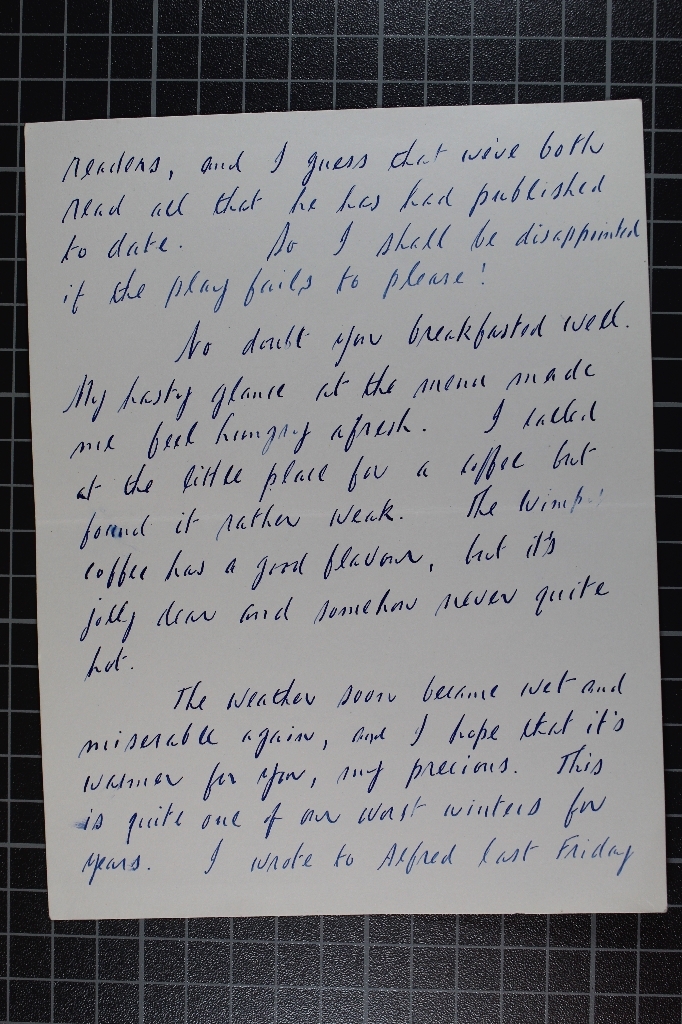 readers, and I guess that we've both
read all that he has had published
to date. So I shall be disappointed
if the play fails to please!
No doubt you breakfasted well.
My hasty glance at the menu made
me feel hungry afresh. I called
at the little place for a coffee but
found it rather weak. The Wimpy
coffee has a good flavour, but it's
jolly dear and somehow never quite
hot.
The weather soon became wet and
miserable again, and I hope that it's
warmer for you, my precious. This
is quite one of our worst winters for
years. I wrote to Alfred last Friday